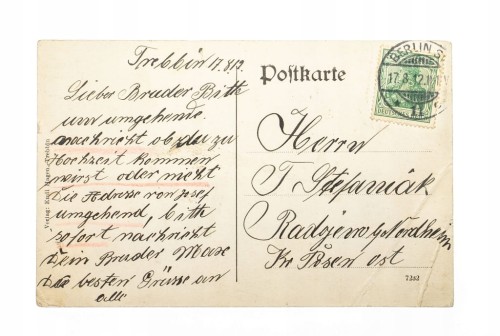 Trebbin 17.8.12.
Lieber Bruder Bitte
um umgehende
nachricht ob du zu
Hochzeit kommen
wirst oder nicht
die Adresse von Josef
umgehend, bitte
sofort nachricht
Dein Bruder Max
Die besten Grüsse an
alle
Verlag: Emil Hagen, Trebbin
Postkarte
BERLIN S
17.8.12.
Herrn
T Stefaniak
Radojewo b/ Nordheim
Kr Posen ost
7382